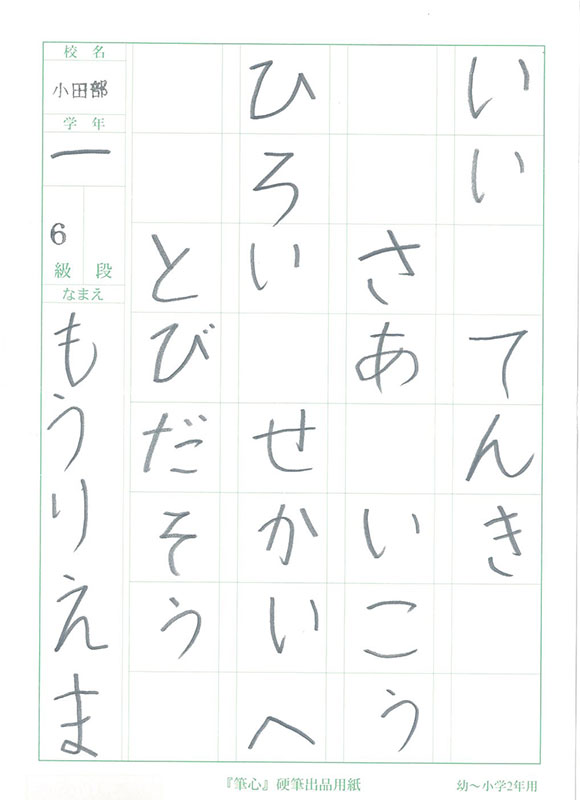 いい てんき
さあ いこう
ひろい せかいへ
とびだそう
校名
小田部
学年
一
6
級 段
なまえ
もうりえま
『筆心』硬筆出品用紙
幼〜小学2年用